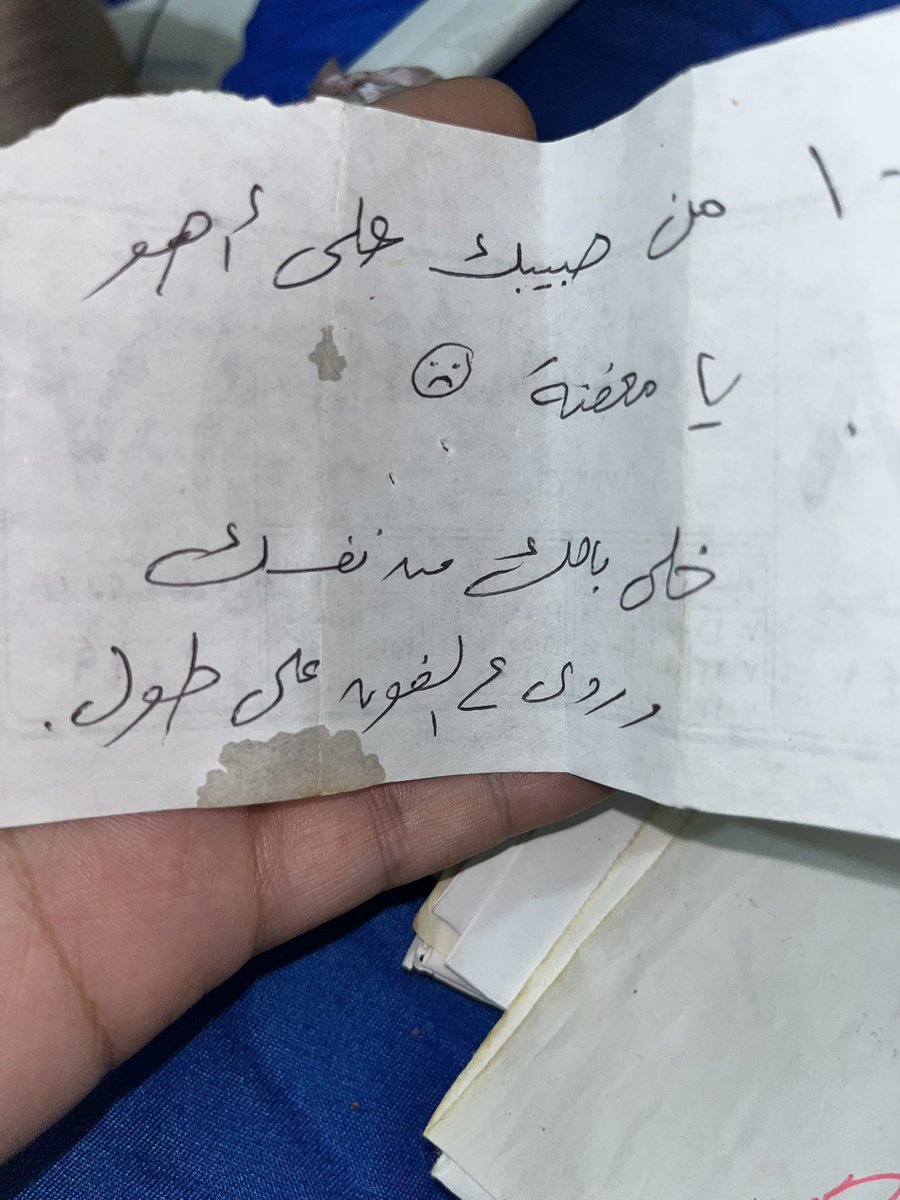 ١-
من حبيبك علي أهو
يا معفنة ☹
خلى بالك من نفسك
وردى ع الفون على طول.